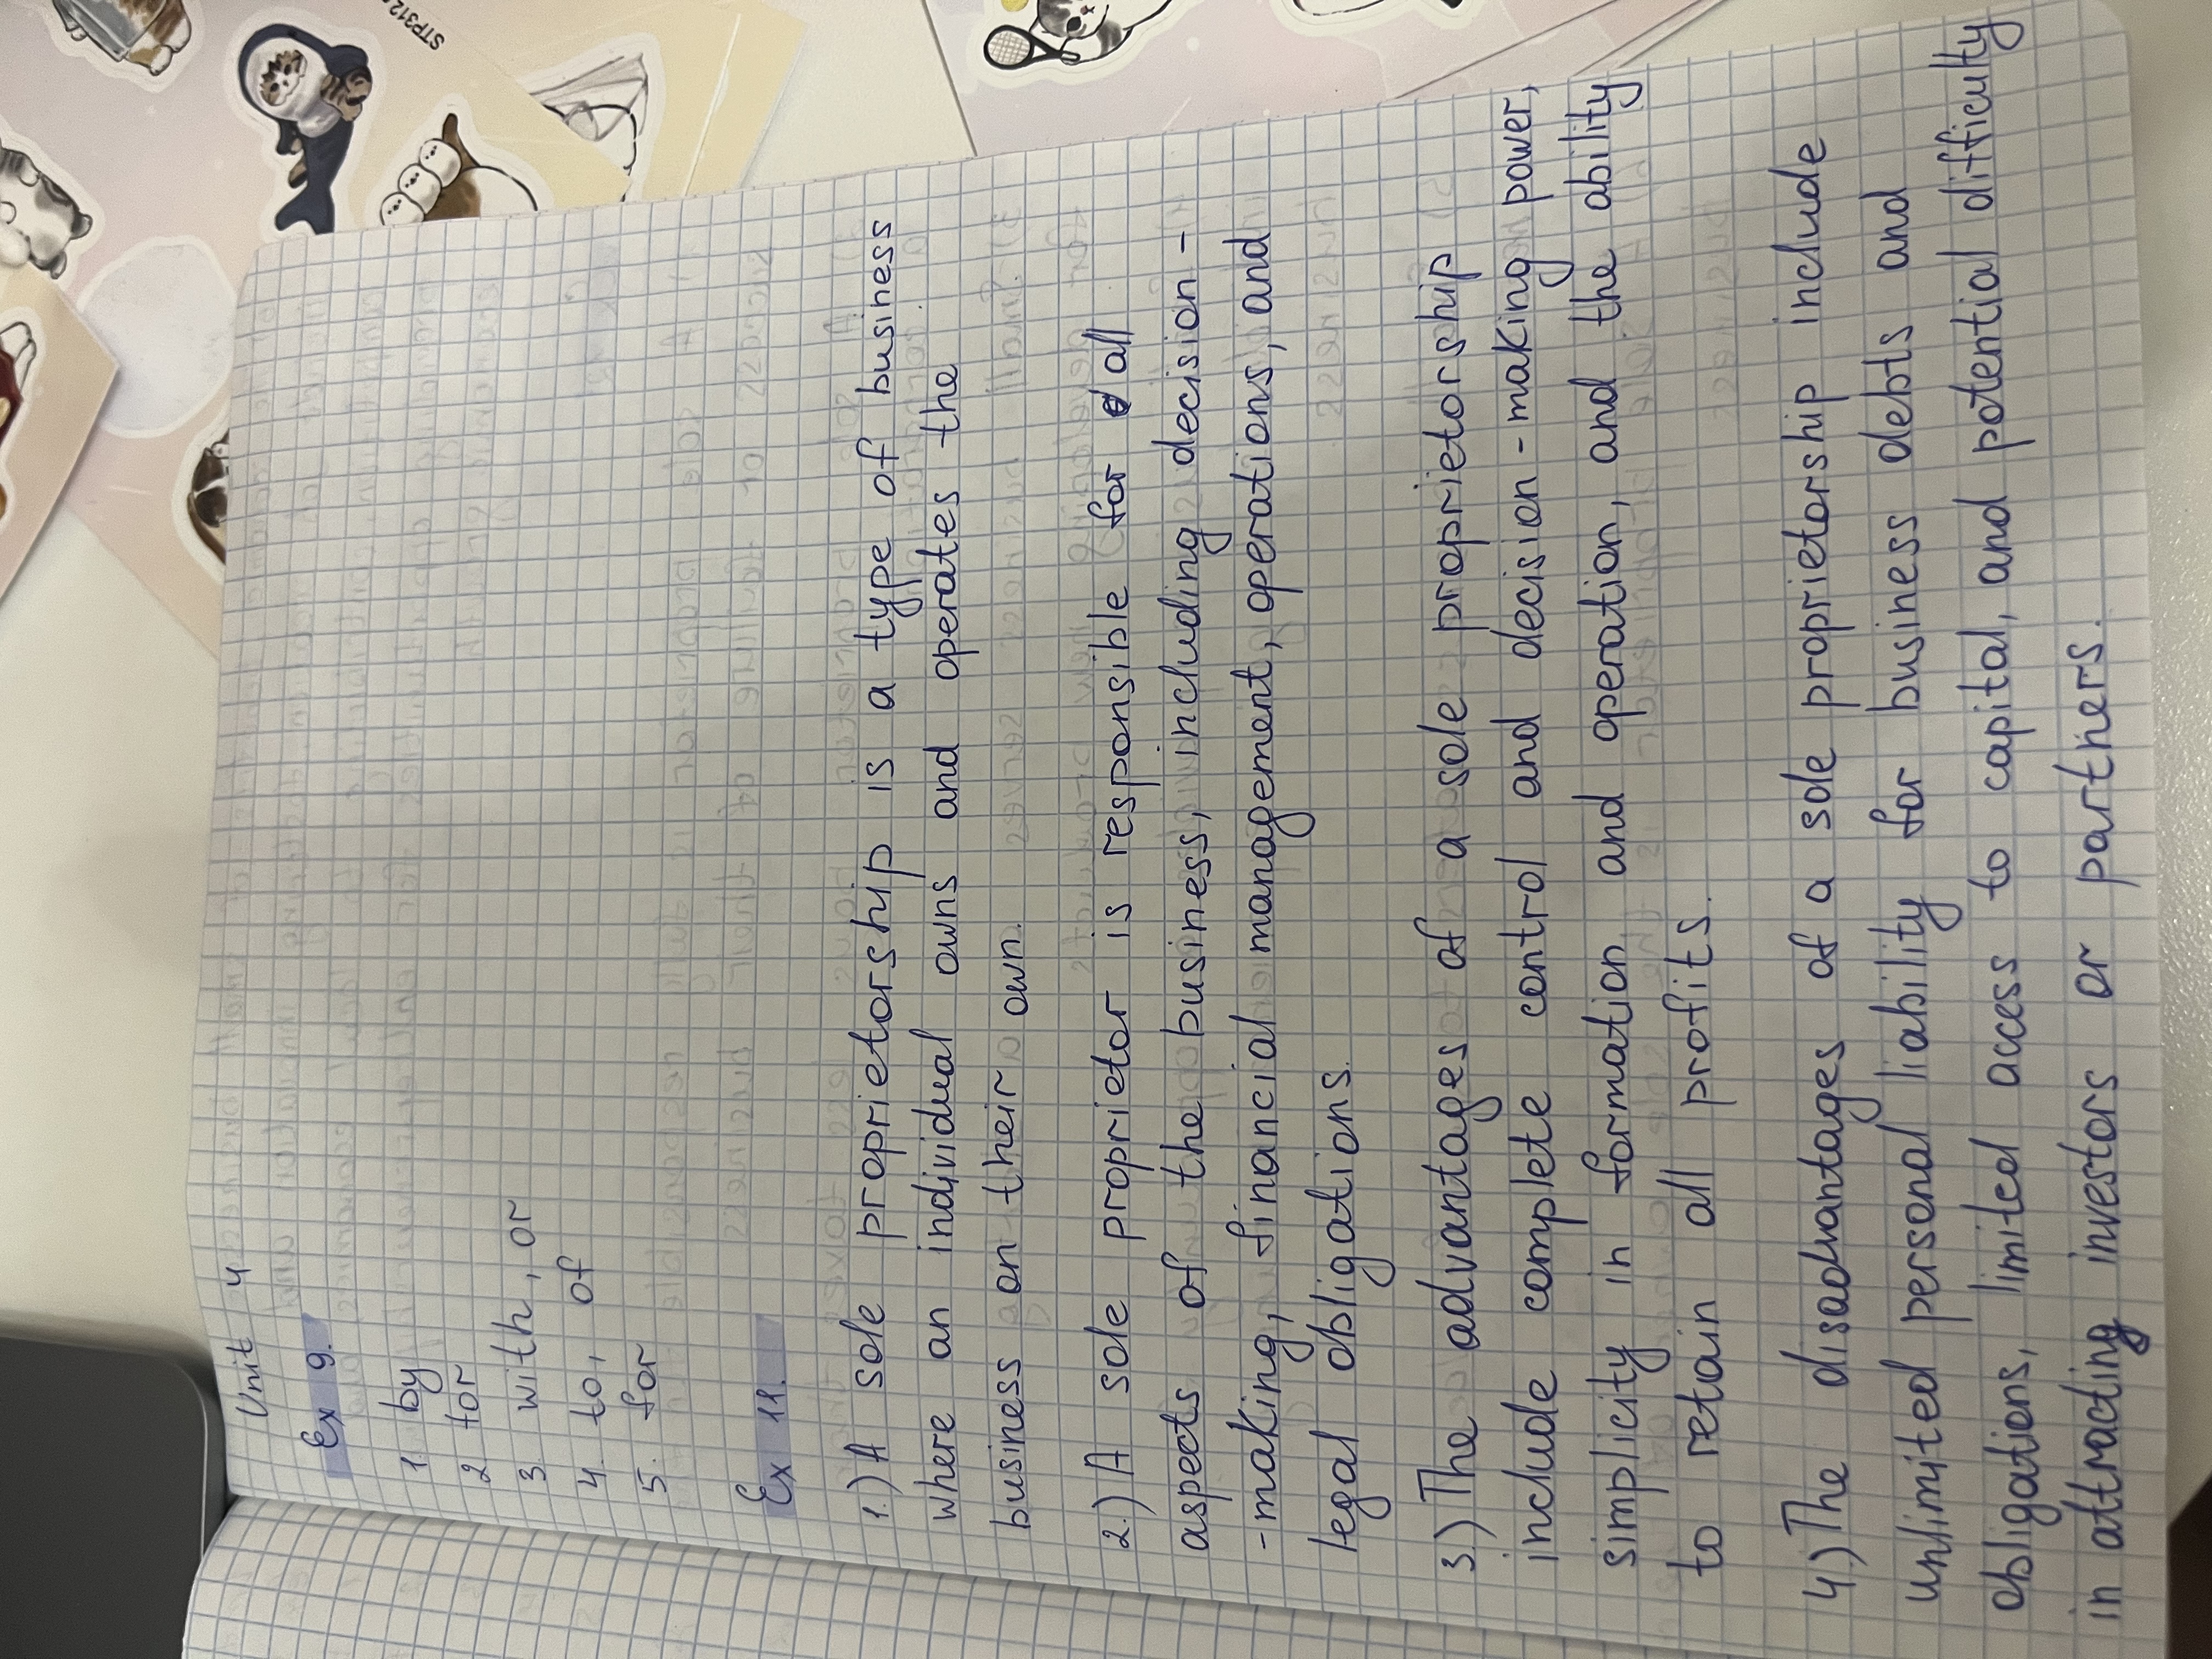 Unit 4
Ex 9.
1. by
2 for
3. with, or
4. to, of
5. for
Ex 11.
1.) A sole proprietorship is a type of business
where an individual owns and operates the
business on their own.
2.) A sole proprietor is responsible for all
aspects of the business, including decision-
-making, financial management, operations, and
legal obligations.
3.) The advantages of a sole proprietorship
include complete control and decision-making power,
simplicity in formation and operation, and the ability
to retain all profits.
4.) The disadvantages of a sole proprietorship include
unlimited personal liability for business debts and
obligations, limited access to capital, and potential difficulty
in attracting investors or partners.
STP312